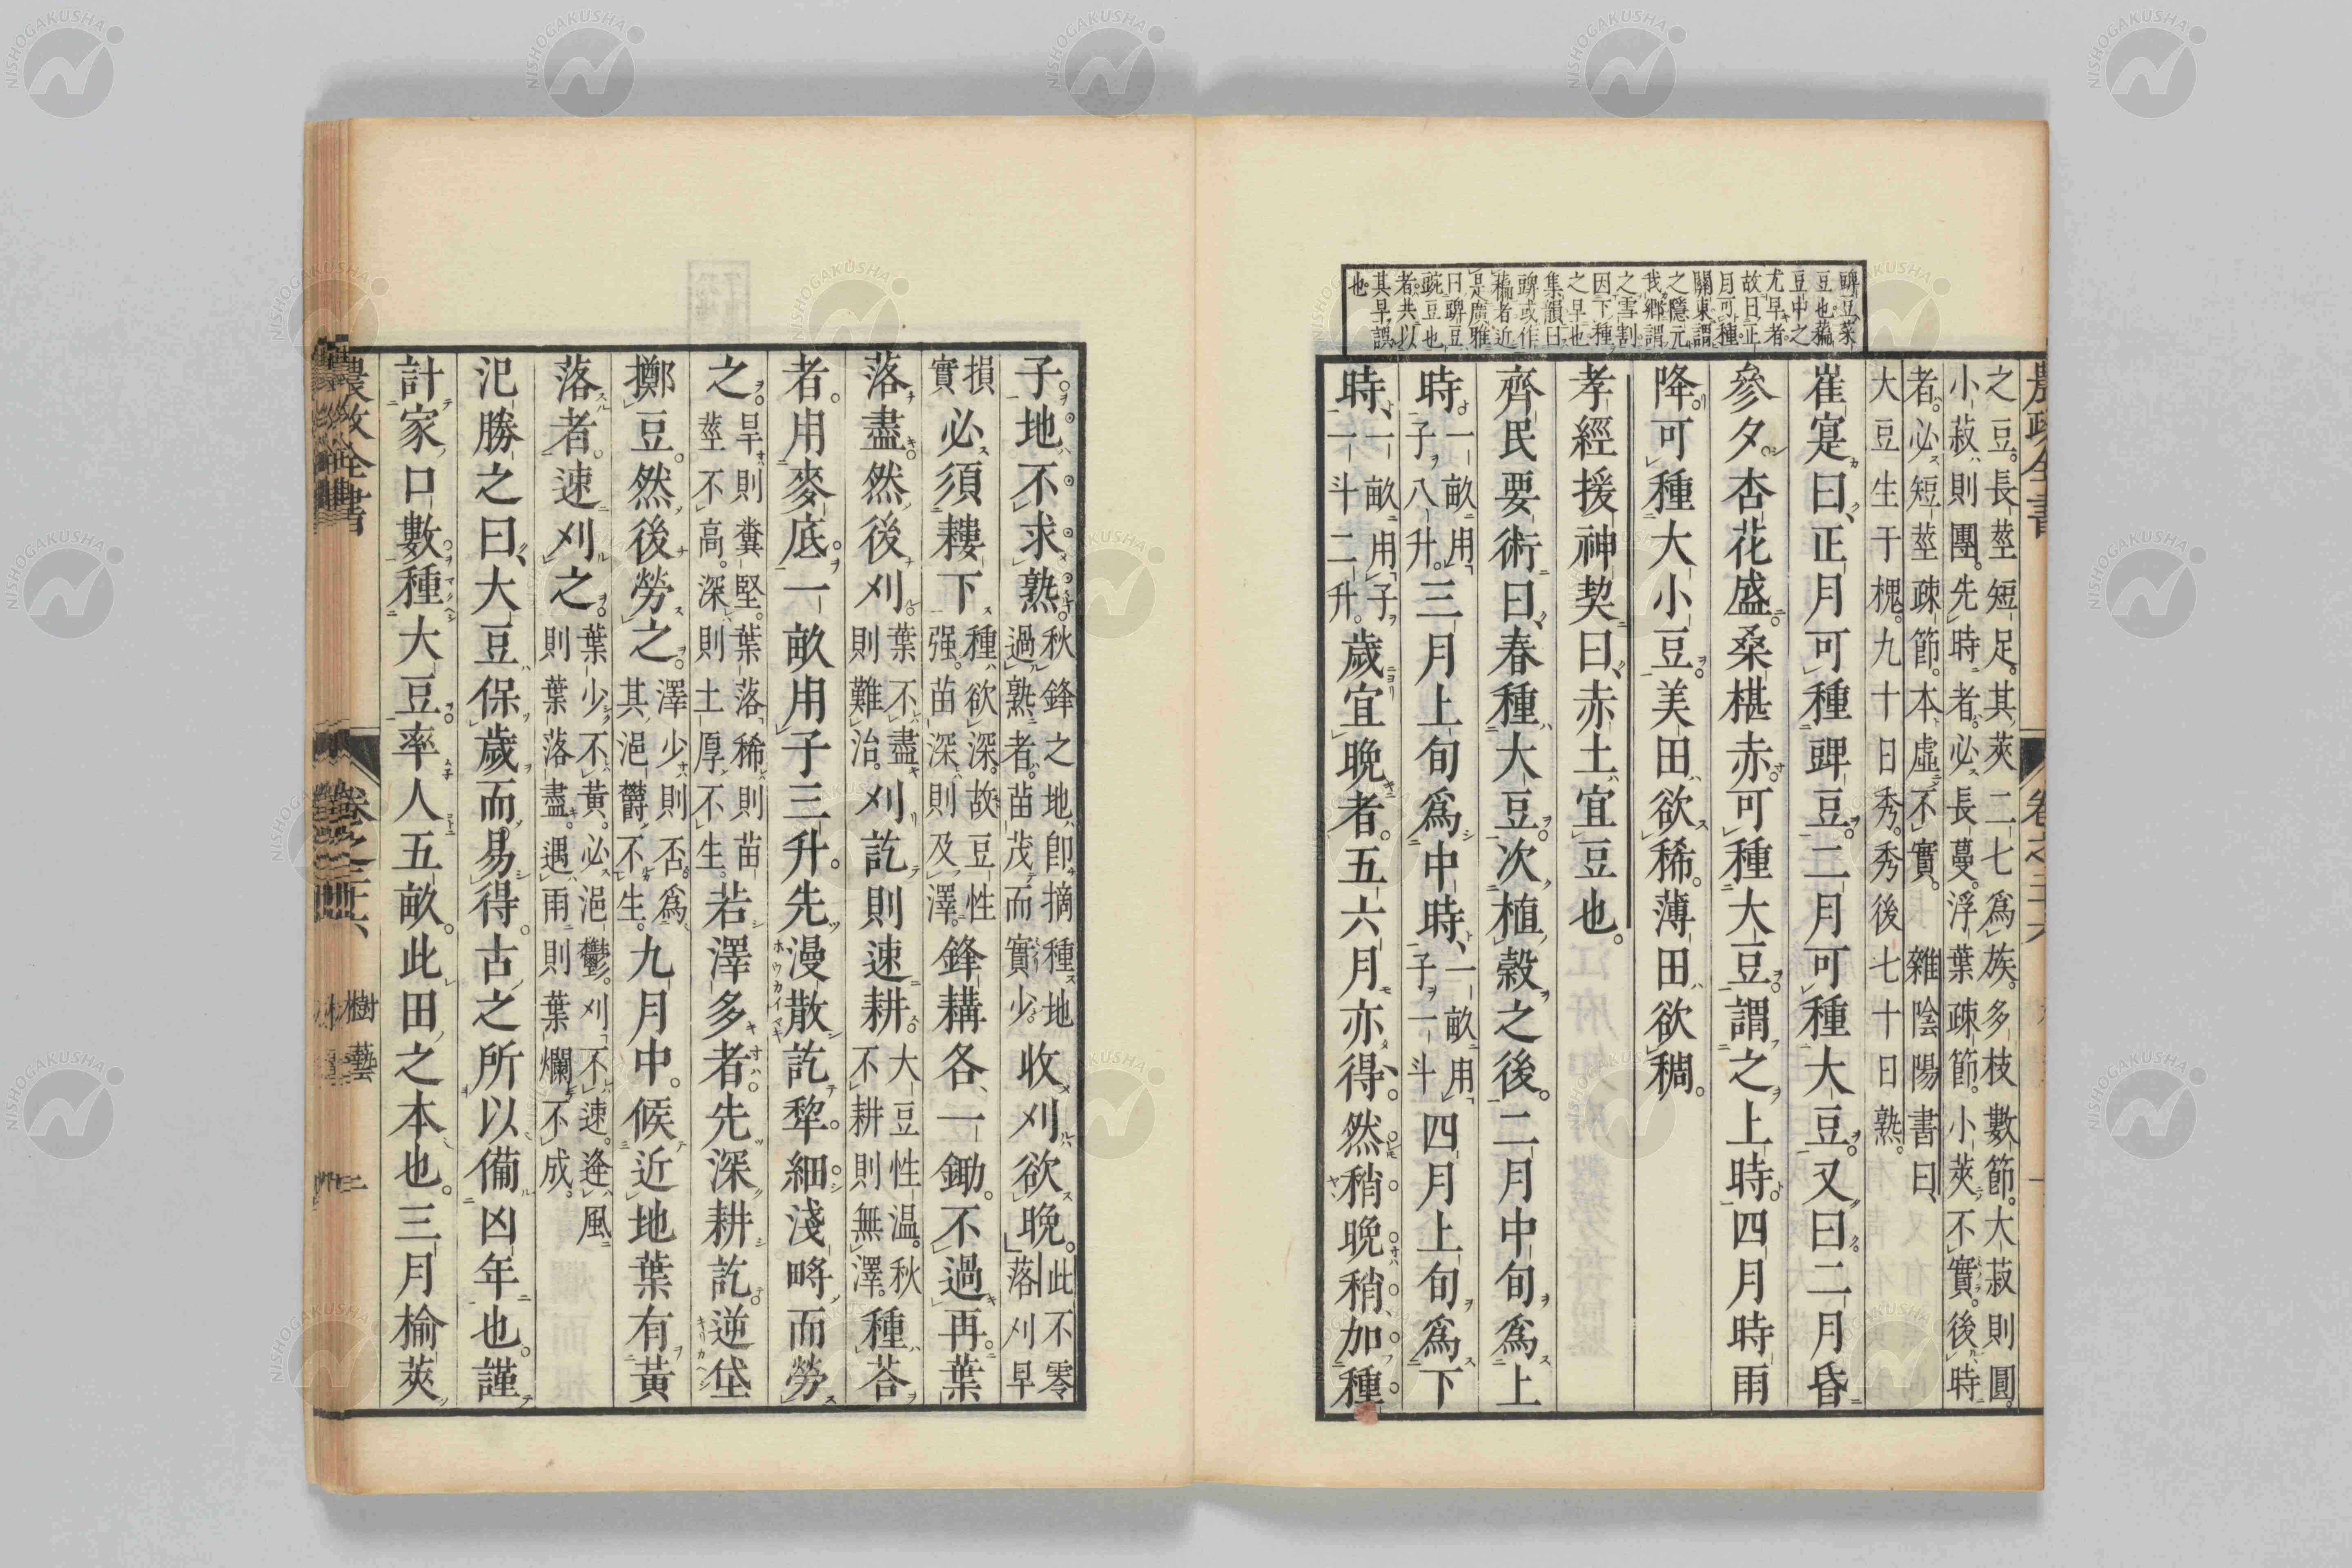 農政全書　卷之二十六
豍豆、菜
豆也。藊
豆中之
尤早者
故曰正
月可種
關東謂
之隱元
我鄉謂
之雪割
因下種
之早也
集韻曰
豍或作
藊者近
是廣雅
曰豍豆
豌豆也
者。共以
其早誤
也。
之豆。長莖短足。其莢二七爲族。多枝數節。大菽則圓。
小菽則團。先時者。必長蔓。浮葉疎節。小莢不實。後時
者。必短莖疎節。本虛不實。　雜陰陽書曰、
大豆生于槐。九十日秀。秀後七十日熟。
崔寔曰、正月可種豍豆。二月可種大豆。又曰。二月昏
參夕。杏花盛。桑椹赤。可種大豆。謂之上時。四月時雨
降。可種大小豆。美田欲稀。薄田欲稠。
孝經援神契曰、赤土宜豆也。
齊民要術曰、春種大豆。次植穀之後。二月中旬爲上
時。一畝用子八升。三月上旬爲中時、一畝用子一斗四月上旬爲下
時、一畝用子一斗二升。歲宜晚者。五六月亦得。然稍晚稍加種
子。地不求熟。秋鋒之地。卽摘種地過熟者。苗茂而實少。收刈欲晚。此不零落刈早
損實必須耬下種欲深。故豆性强。苗深則及澤。鋒耩各一鋤。不過再。葉
落盡。然後刈葉不盡則難治。刈訖則速耕。大豆性温。秋不耕則無澤。種荅
者。用麥底。一畝用子三升。先漫散訖。犂細淺畤而勞
之。旱則糞堅。葉落稀則苗莖不高。深則土厚不生。若澤多者。先深耕訖。逆垡
擲豆。然後勞之。澤少則否。爲其浥鬱不生。九月中。候近地葉有黃
落者。速刈之。葉少不黃。必浥鬱。刈不速。逢風則葉落盡。遇雨則葉爛不成。
氾勝之曰、大豆保歲而易得。古之所以備凶年也。謹
計家口數。種大豆。率人五畝。此田之本也。三月榆莢
農政全書　卷之二十六　樹藝　二